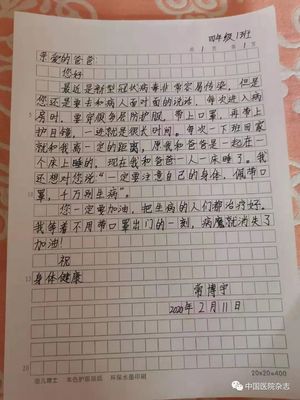 四年级 13班
第 1 页 共 1 页
亲爱的爸爸:
您好
最近是新型冠状病毒非常容易传染,但是
您还是要去和病人面对面的说话,每次进入病
房时,要穿很多层防护服,带上口罩,再带上
护目镜,一进就是很长时间。每次一下班回家
就和我离一定的距离,原我和爸爸是一起在一
个床上睡的,现在我和爸爸一人一床睡了。我
还想对您说“一定要注意自己的身体,佩带口
罩,千万别生病”。
您一定要加油,把生病的人们都治疗好。
我等着不用带口罩出门的一刻,病魔就消失了
加油!
祝
身体健康
雷博宇
2020年2月11日
本色护眼纸品 环保水墨印刷
20×20=400
中国医院杂志